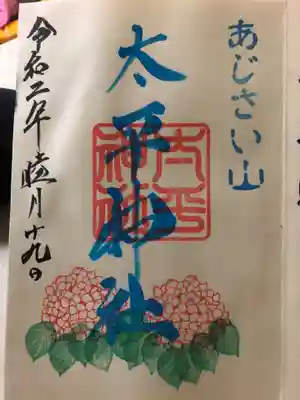 あじさい山
太平神社
太平
神社
令和二年睦月十九日